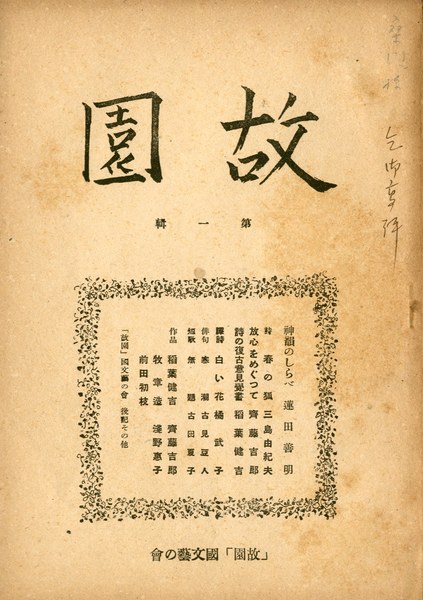 故園
第一輯
神韻のしらべ 蓮田善明
詩 春の狐 三島由紀夫
放心をめぐつて 齊藤吉郎
詩の復古意見覺書 稻葉健吉
譯詩 白い花 橘武子
俳句 寒潮 古見豆人
短歌 無題 古田夏子
作品 稻葉健吉 齊藤吉郎
牧章造 淺野惠子
前田初枝
「故園」國文藝の會 後記その他
「故園」國文藝の會
乞御高評